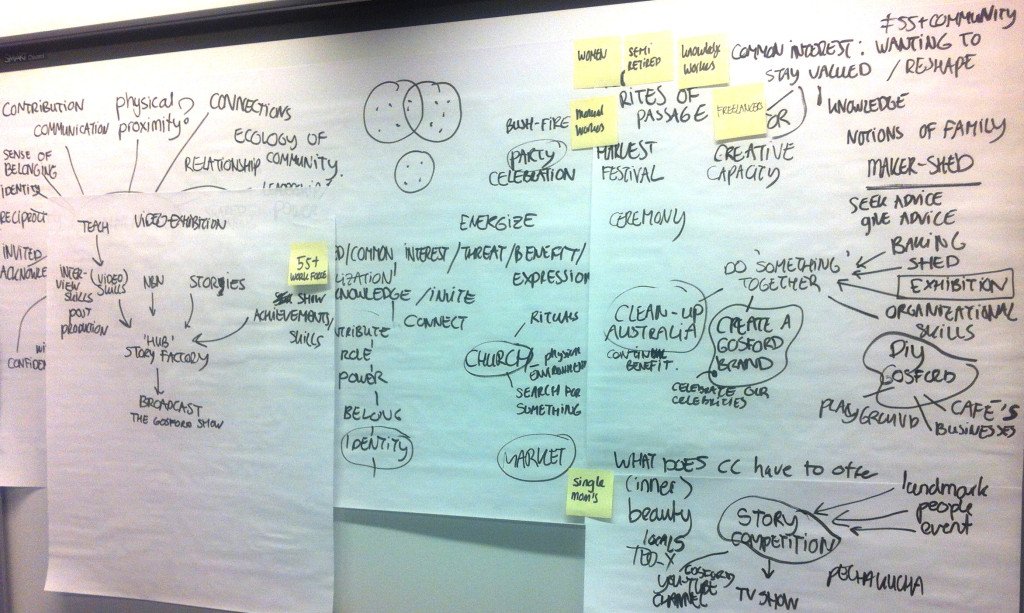 SMART
CONTRIBUTION
COMMUNICATION
physical
proximity?
CONNECTIONS
ECOLOGY OF
COMMUNITY.
RELATIONSHIP
SENSE OF
BELONGING
INVITED
TEACH
VIDEO EXHIBITION
INTER-
VIEW
SKILLS
(VIDEO)
SKILLS
POST
PRODUCTION
STORIES
'HUB'
STORY FACTORY
BROADCAST
THE GOSFORD SHOW
55+
WORK FORCE
SHOW
ACHIEVEMENTS/
SKILLS
BUSH-FIRE
PARTY
CELEBRATION
ENERGIZE
/COMMON INTEREST/THREAT/BENEFIT/
EXPRESSION
KNOWLEDGE /INVITE
CONNECT
ROLE
POWER
BELONG
IDENTITY
RITUALS
CHURCH
physical
ENVIRONMENT
SEARCH FOR
SOMETHING
MARKET
WOMEN
SEMI
RETIRED
knowledge
workers
Manual
Workers
FREELANCERS
OR
RITES OF
PASSAGE
HARVEST
FESTIVAL
CREATIVE
CAPACITY
CEREMONY
≠55+COMMUNITY
COMMON INTEREST: WANTING TO
STAY VALUED / RESHAPE
KNOWLEDGE
NOTIONS OF FAMILY
MAKER-SHED
SEEK ADVICE
GIVE ADVICE
BAKING
SHED
EXHIBITION
ORGANIZATIONAL
SKILLS
DO 'SOMETHING'
TOGETHER
CLEAN-UP
AUSTRALIA
BENEFIT.
CREATE A
GOSFORD
BRAND
CELEBRATE OUR
CELEBRITIES
DIY
GOSFORD
PLAYGROUND
CAFÉ'S
BUSINESSES
single
mom's
WHAT DOES CC have to offer
(inner)
beauty
locals
TED-X
GOSFORD
YOU-TUBE
CHANNEL
STORY
COMPETITION
TV SHOW
landmark
people
event
PECHAKUCHA